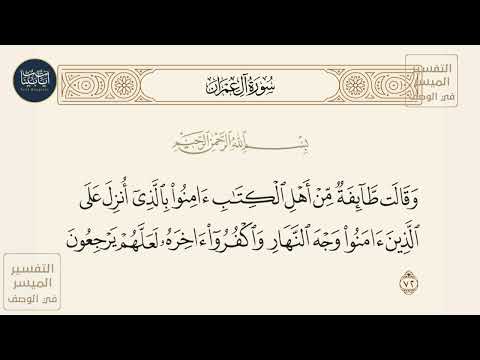 آيات بينات
سُورَةُ آلِ عِمْرَانَ
التفسير
الميسر
في الوصف
بِسْمِ اللَّهِ الرَّحْمَٰنِ الرَّحِيمِ
وَقَالَت طَّآئِفَةٌ مِّنْ أَهْلِ ٱلْكِتَٰبِ ءَامِنُوا۟ بِٱلَّذِىٓ أُنزِلَ عَلَى
ٱلَّذِينَ ءَامَنُوا۟ وَجْهَ ٱلنَّهَارِ وَٱكْفُرُوٓا۟ ءَاخِرَهُۥ لَعَلَّهُمْ يَرْجِعُونَ
٧٢
التفسير
الميسر
في الوصف